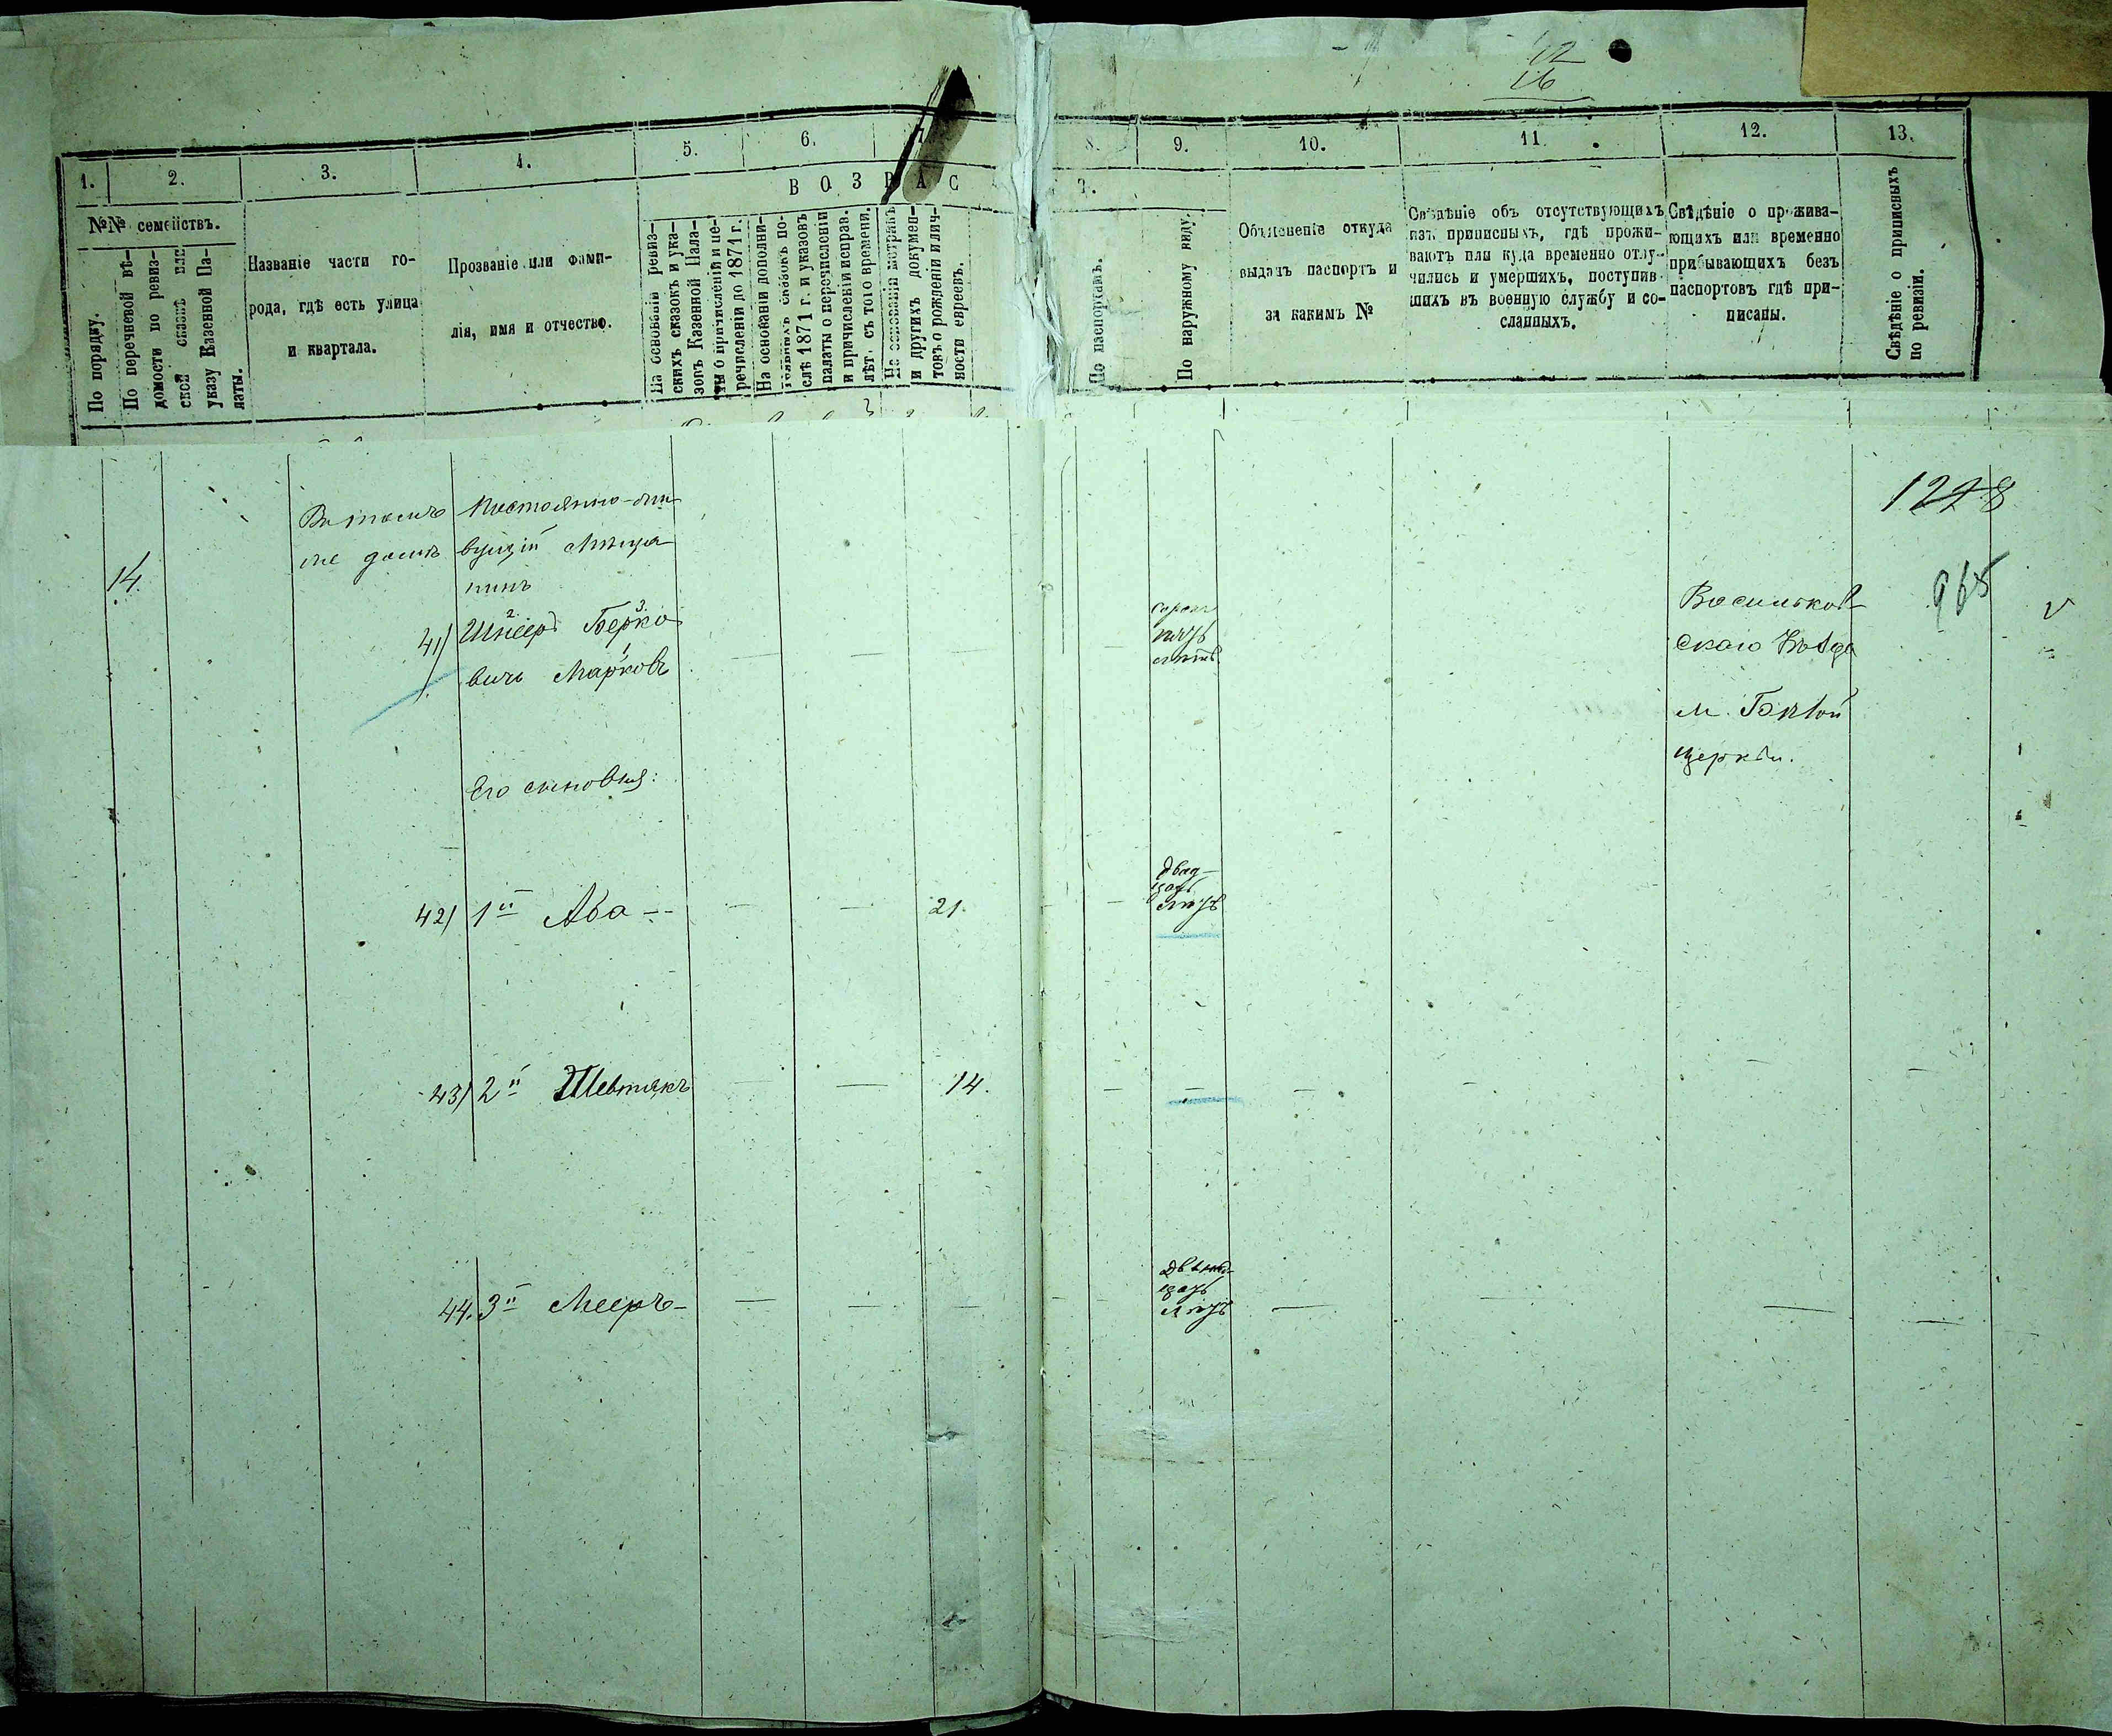 12
16
1.
2.
3.
4.
5.
6.
7.
8.
9.
10.
11.
12.
13.
ВОЗРАС
Т.
№№ семействъ.
По порядку.
По перечневой вѣ-
домости по ревиз-
ской сказкѣ или
указу Казенной Па-
латы.
Названіе части го-
рода, гдѣ есть улица
и квартала.
Прозваніе или фами-
лія, имя и отчество.
На основаніи ревиз-
скихъ сказокъ и ука-
зовъ Казенной Пала-
ты о причисленій и пе-
речисленіи до 1871 г.
На основаніи дополни-
тельныхъ сказокъ по-
слѣ 1871 г. и указовъ
палаты о перечисленіи
и причисленіи исправ.
лѣт. съ того времени.
На основаніи метрикъ
и другихъ докумен-
товъ о рожденіи и лич-
ности евреевъ.
По паспортамъ.
По наружному виду.
Объясненіе откуда
выданъ паспортъ и
за какимъ №
Свѣдѣніе объ отсутствующихъ
изъ приписныхъ, гдѣ прожи-
ваютъ или куда временно отлу-
чились и умершихъ, поступив-
шихъ въ военную службу и со-
сланныхъ.
Свѣдѣніе о прожива-
ющихъ или временно
прибывающихъ безъ
паспортовъ гдѣ при-
писаны.
Свѣдѣніе о приписныхъ
по ревизіи.
14.
Въ томъ
же домѣ
Постоянно-жи-
вущій Мѣща-
нинъ
41) Шнееръ Берко-
вичъ Марковъ
сорокъ
пять
лѣтъ
Васильков-
скаго Уѣзда
м. Бѣлой
Церкви.
1248
965
Его сыновья:
42) 1й Аба — — — 21. — —
двад-
цать
лѣтъ
43) 2й Шевтякъ — — 14. — — — — —
44. 3й Мееръ — — — —
двѣнад-
цать
лѣтъ
— — — —